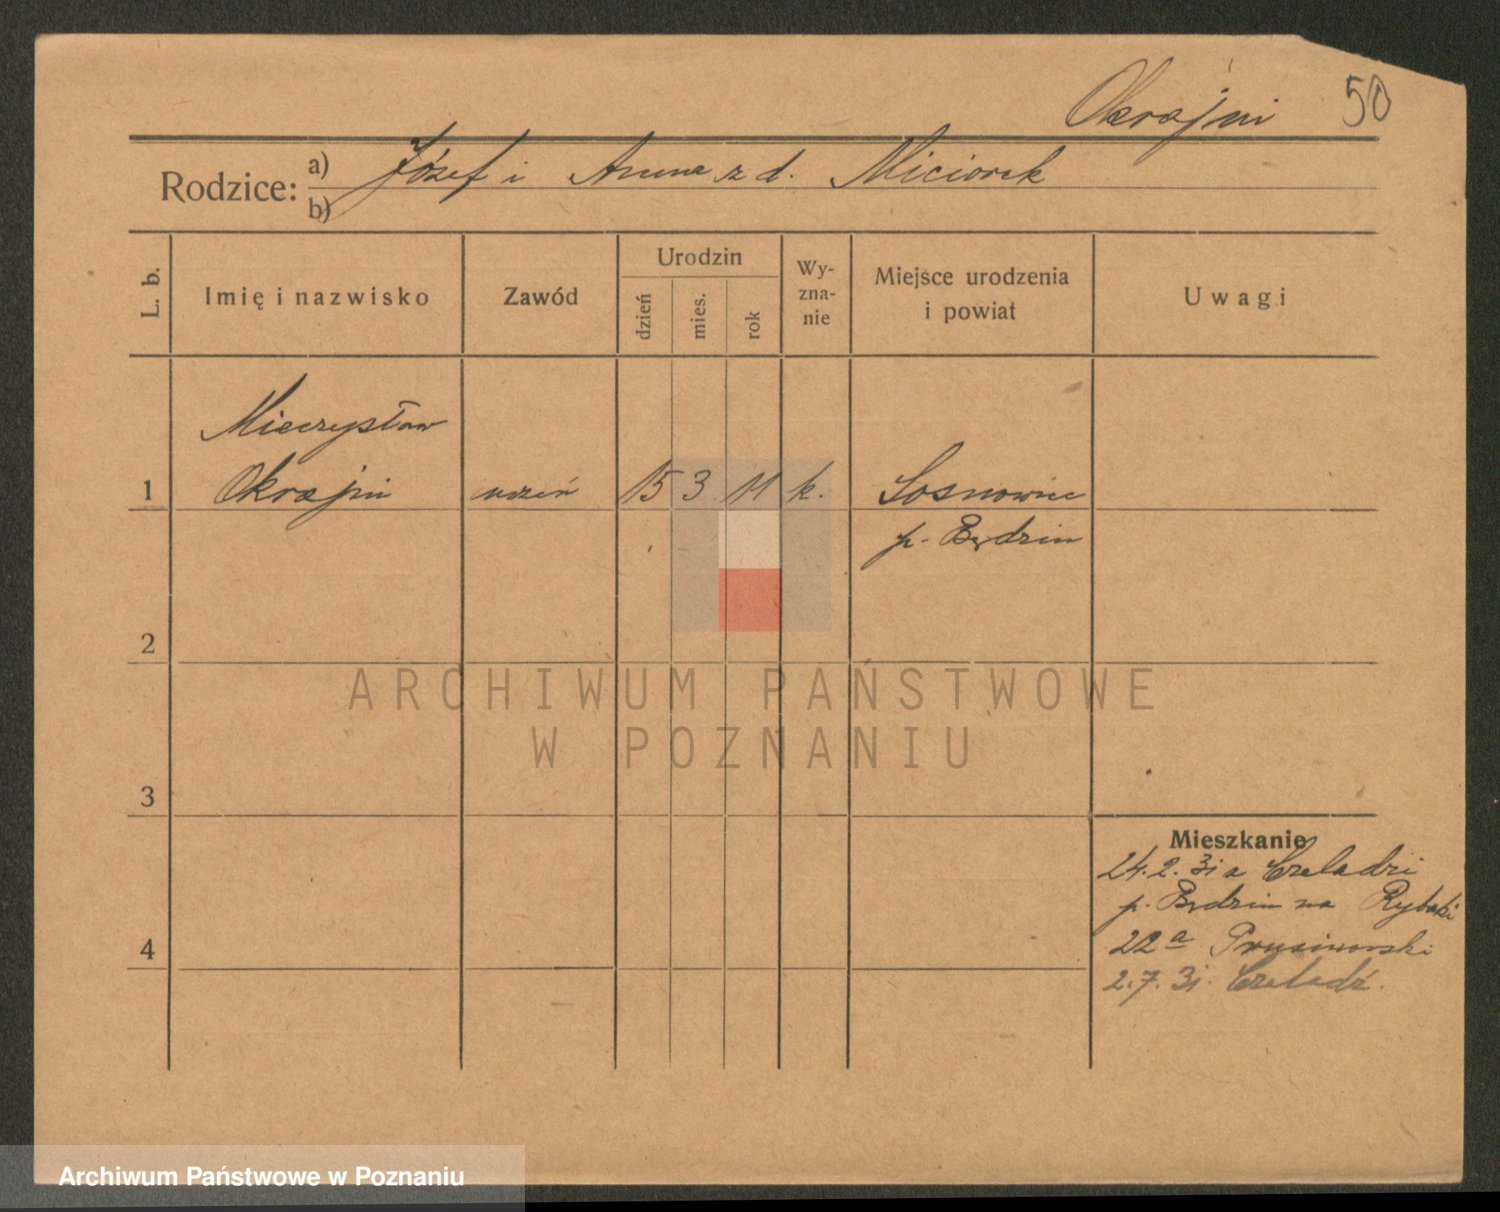 Okrajni 50
Rodzice: a) Józef i Anna z d. Miciorek
b)
L. b. Imię i nazwisko Zawód Urodzin dzień mies. rok Wy-zna-nie Miejsce urodzenia i powiat Uwagi
Mieczysław
1 Okrajni uczeń 15 3 11 k. Sosnowiec
p. Będzin
2
ARCHIWUM PAŃSTWOWE
W POZNANIU
3
4
Mieszkanie
24.2.31 a Czeladzi
p. Będzin na Rybaki
22a Prusinowski
2.7.31. Czeladź.
Archiwum Państwowe w Poznaniu